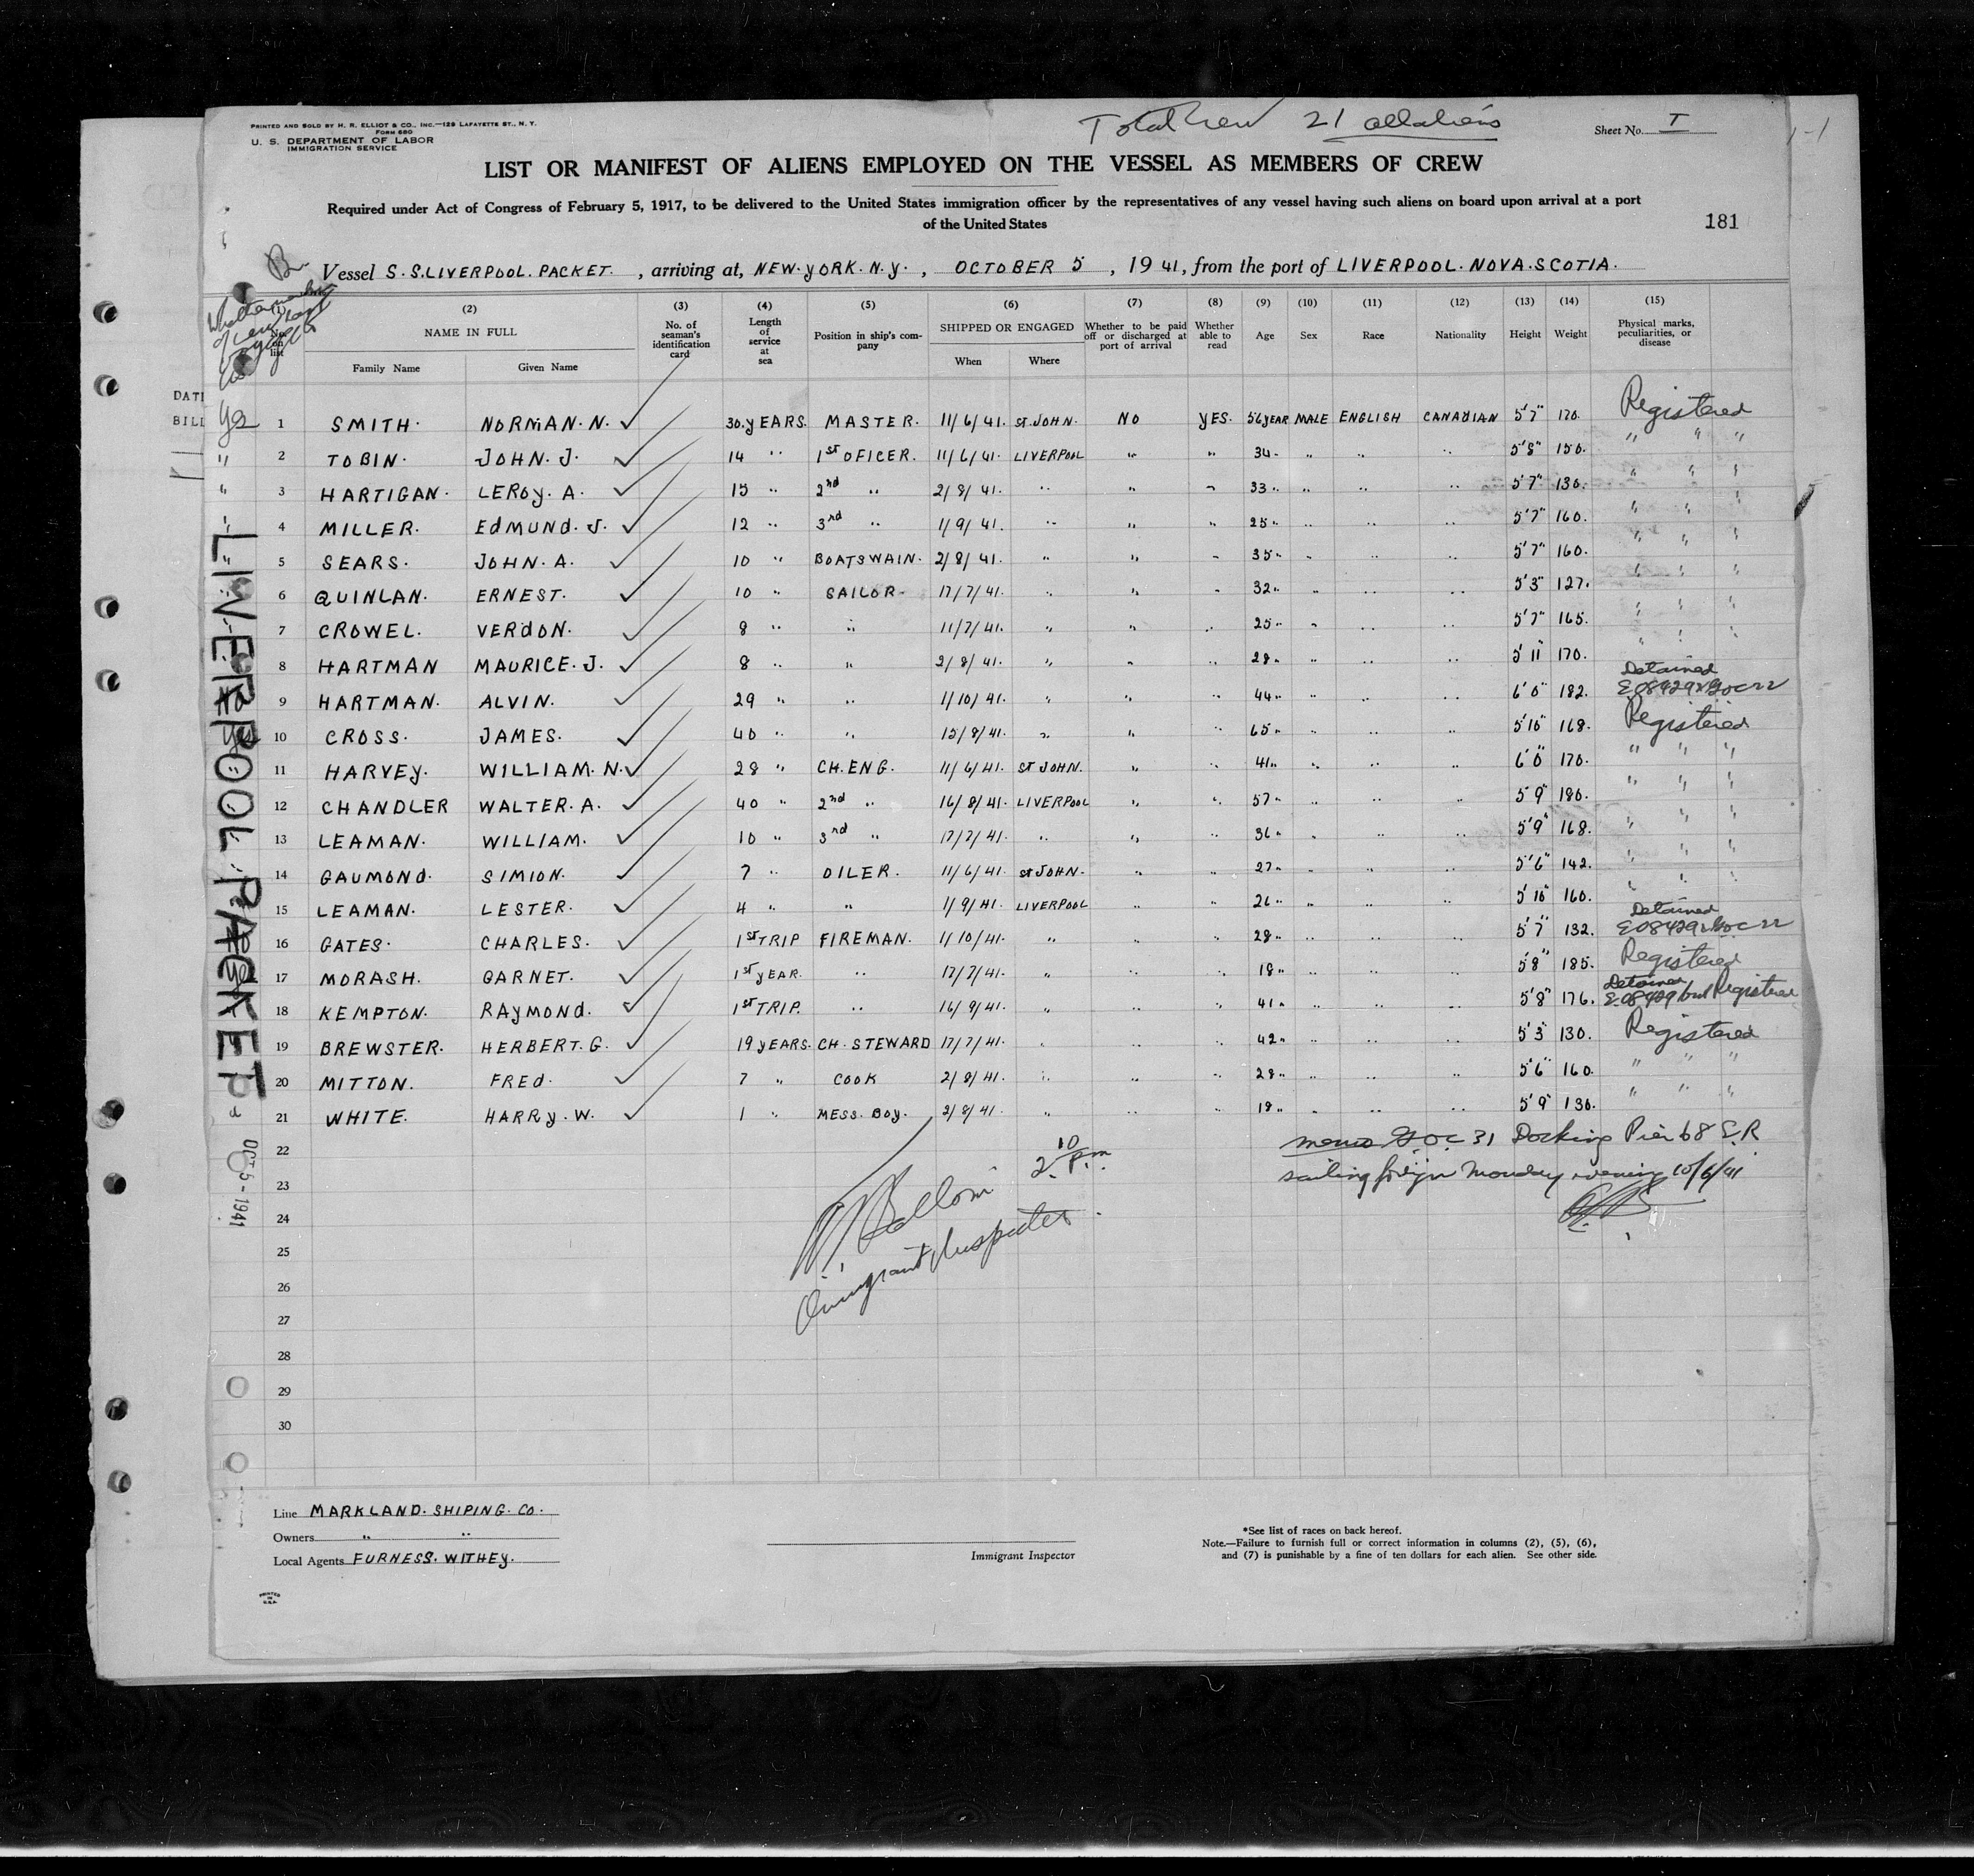 PRINTED AND SOLD BY H. R. ELLIOT & CO., INC.—129 LAFAYETTE ST., N. Y.
FORM 680
U. S. DEPARTMENT OF LABOR
IMMIGRATION SERVICE
Total Crew 21 all aliens
Sheet No. I
LIST OR MANIFEST OF ALIENS EMPLOYED ON THE VESSEL AS MEMBERS OF CREW
Required under Act of Congress of February 5, 1917, to be delivered to the United States immigration officer by the representatives of any vessel having such aliens on board upon arrival at a port
of the United States
181
Br.
Vessel S.S. LIVERPOOL. PACKET. , arriving at, NEW. YORK. N.Y. , OCTOBER 5 , 19 41, from the port of LIVERPOOL. NOVA. SCOTIA.
(1) No. on list (2) NAME IN FULL Family Name Given Name (3) No. of seaman's identification card (4) Length of service at sea (5) Position in ship's company (6) SHIPPED OR ENGAGED When Where (7) Whether to be paid off or discharged at port of arrival (8) Whether able to read (9) Age (10) Sex (11) Race (12) Nationality (13) Height (14) Weight (15) Physical marks, peculiarities, or disease
DATE
BILL
Yes 1 SMITH. NORMAN. N. 30. YEARS. MASTER. 11/6/41. ST. JOHN. NO YES. 56 YEAR MALE ENGLISH CANADIAN 5'7" 170. Registered
" 2 TOBIN. JOHN. J. 14 " 1st OFICER. 11/6/41. LIVERPOOL " " 34 " " " " 5'8" 150. " " "
" 3 HARTIGAN. LEROY. A. 15 " 2nd " 2/8/41. " " " 33 " " " " 5'7" 130. " " "
" 4 MILLER. EDMUND. J. 12 " 3rd " 1/9/41. " " " 25 " " " " 5'7" 160. " " "
" 5 SEARS. JOHN. A. 10 " BOATSWAIN. 2/8/41. " " " 35 " " " " 5'7" 160. " " "
6 QUINLAN. ERNEST. 10 " SAILOR. 17/7/41. " " " 32 " " " " 5'3" 127. " " "
7 CROWEL. VERDON. 8 " " 11/7/41. " " " 25 " " " " 5'7" 165. " " "
8 HARTMAN MAURICE. J. 8 " " 2/8/41. " " " 28 " " " " 5'11" 170. " " "
9 HARTMAN. ALVIN. 29 " " 1/10/41. " " " 44 " " " " 6'0" 182. Detained
10 CROSS. JAMES. 40 " " 15/8/41. " " " 65 " " " " 5'10" 168. Registered
11 HARVEY. WILLIAM. N. 28 " CH. ENG. 11/6/41. ST JOHN. " " 41 " " " " 6'0" 170. " " "
12 CHANDLER WALTER. A. 40 " 2nd " 16/8/41. LIVERPOOL " " 57 " " " " 5'9" 180. " " "
13 LEAMAN. WILLIAM. 10 " 3rd " 17/7/41. " " " 36 " " " " 5'9" 168. " " "
14 GAUMOND. SIMION. 7 " OILER. 11/6/41. ST JOHN. " " 27 " " " " 5'6" 142. " " "
15 LEAMAN. LESTER. 4 " " 1/9/41. LIVERPOOL " " 26 " " " " 5'10" 160. " " "
16 GATES. CHARLES. 1st TRIP FIREMAN. 1/10/41. " " " 28 " " " " 5'7" 132. Detained
17 MORASH. GARNET. 1st YEAR. " 17/7/41. " " " 18 " " " " 5'8" 185. Registered
18 KEMPTON. RAYMOND. 1st TRIP. " 16/9/41. " " " 41 " " " " 5'8" 176. Detained but Registered
19 BREWSTER. HERBERT. G. 19 YEARS. CH. STEWARD 17/7/41. " " " 42 " " " " 5'3" 130. Registered
20 MITTON. FRED. 7 " COOK 2/8/41. " " " 28 " " " " 5'6" 160. " " "
21 WHITE. HARRY. W. 1 " MESS. BOY. 2/8/41. " " " 18 " " " " 5'9" 130. " " "
22
23
24
25
26
27
28
29
30
LIVERPOOL PACKET
OCT 5 - 1941
2 10 P.m.
Immigrant Inspector
31 Docking Pier 68 E.R
sailing foreign Monday evening 10/6/41
Line MARKLAND. SHIPING. CO.
Owners " "
Local Agents FURNESS. WITHEY.
Immigrant Inspector
*See list of races on back hereof.
Note.—Failure to furnish full or correct information in columns (2), (5), (6),
and (7) is punishable by a fine of ten dollars for each alien. See other side.
PRINTED
IN
U.S.A.